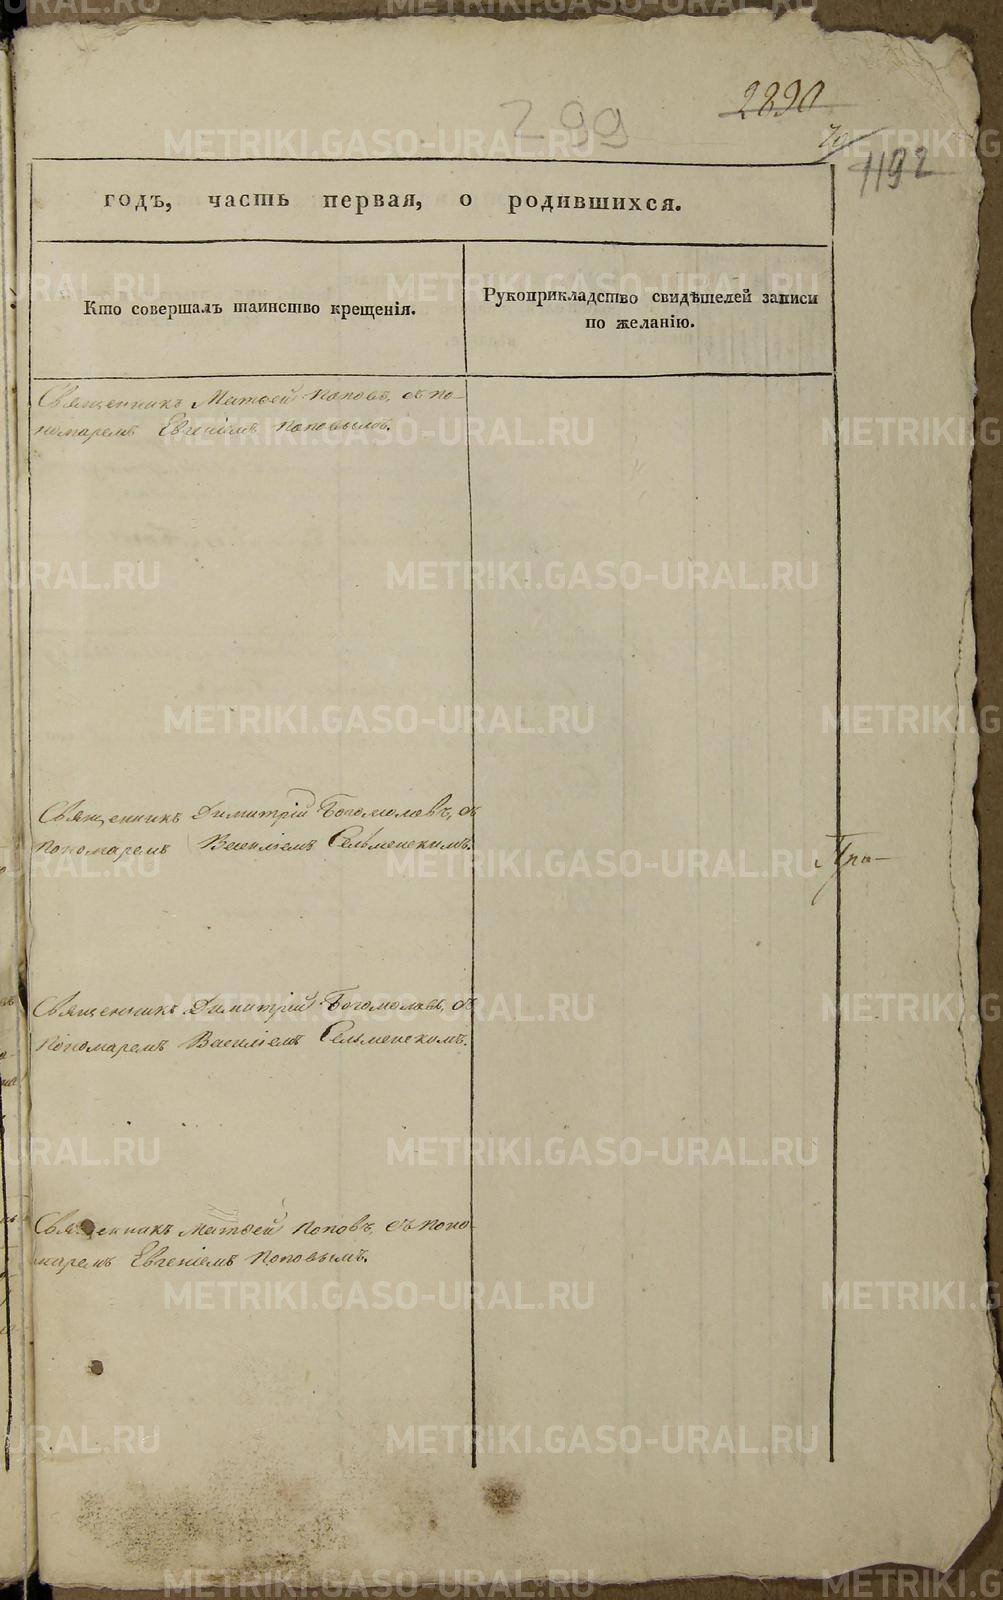 299
2890
70
1192
годъ, часть первая, о родившихся.
Кто совершалъ таинство крещенія.
Рукоприкладство свидѣтелей записи
по желанію.
Священникъ Матѳей Поповъ, съ по-
номаремъ Евгеніемъ Поповымъ.
Священникъ Димитрій Богомоловъ, съ
пономаремъ Василіемъ Сельменскимъ.
Пра-
Священникъ Димитрій Богомоловъ, съ
пономаремъ Василіемъ Сельменскомъ.
Священникъ Матѳей Поповъ, съ поно-
маремъ Евгеніемъ Поповымъ.
METRIKI.GASO-URAL.RU